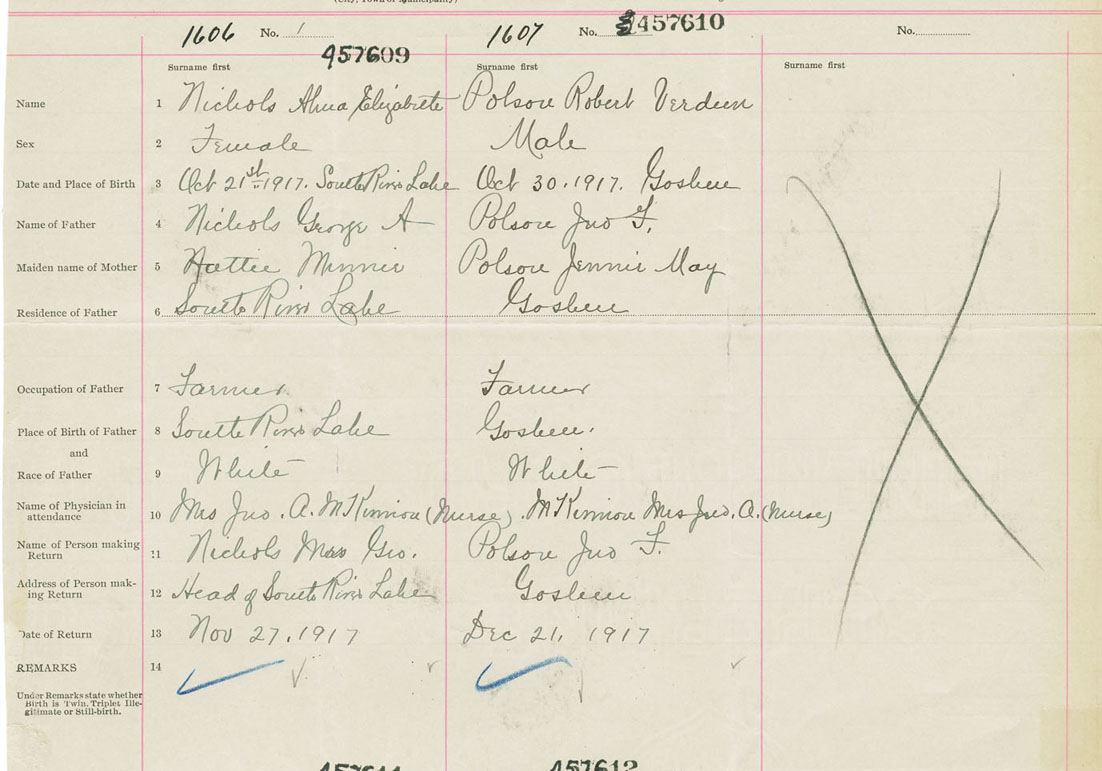 (City, Town or Municipality)
1606 No. 1 1607 No. 457610 No.
457609
Surname first Surname first Surname first
Name 1 Nichols Elizabeth Polson Robert Verdun
Sex 2 Female Male
Date and Place of Birth 3 Oct 21st 1917. South River Lake Oct 30. 1917. Goshen
Name of Father 4 Nichols George A Polson Jno F.
Maiden name of Mother 5 Hattie Minnie Polson Jennie May
Residence of Father 6 South River Lake Goshen
Occupation of Father 7 Farmer Farmer
Place of Birth of Father 8 South River Lake Goshen.
and
Race of Father 9 White White
Name of Physician in
attendance 10 Mrs Jno. A. McKinnon (Nurse). McKinnon Mrs Jno. A. (Nurse)
Name of Person making
Return 11 Nichols Mrs Geo. Polson Jno F.
Address of Person mak-
ing Return 12 Head of South River Lake Goshen
Date of Return 13 Nov 27, 1917 Dec 21, 1917
REMARKS 14
Under Remarks state whether
Birth is Twin, Triplet Ille-
gitimate or Still-birth.
457612